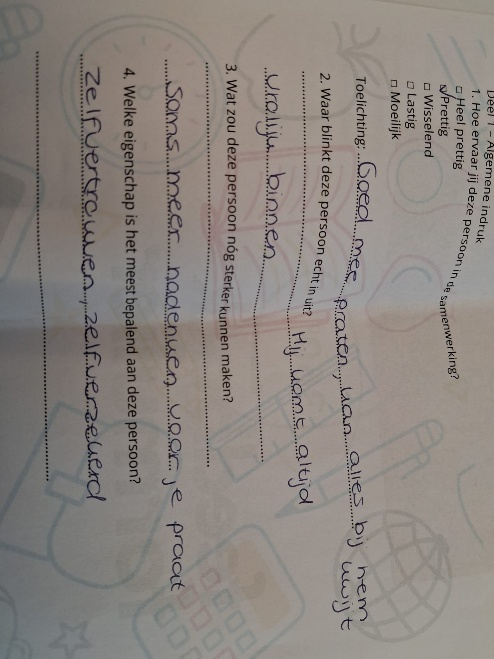 Deel 1 – Algemene indruk
1. Hoe ervaar jij deze persoon in de samenwerking?
□ Heel prettig
☑ Prettig
□ Wisselend
□ Lastig
□ Moeilijk
Toelichting: Goed mee praten, kan alles bij hem
kwijt
2. Waar blinkt deze persoon echt in uit? Hij komt altijd
vrolijk binnen
3. Wat zou deze persoon nóg sterker kunnen maken?
Soms meer nadenken voor je praat
4. Welke eigenschap is het meest bepalend aan deze persoon?
zelfvertrouwen, zelfverzekerd